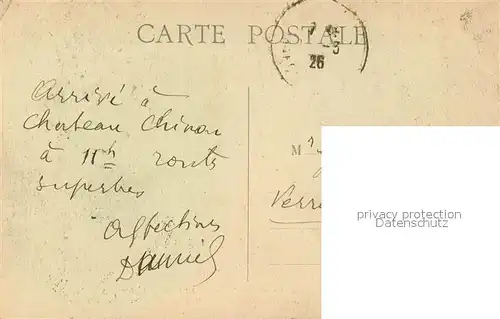 CARTE POSTALE
26
Arrivé à
Chateau Chinon
à 11h routs
superbes
Affections
M
Verr
privacy protection
Datenschutz